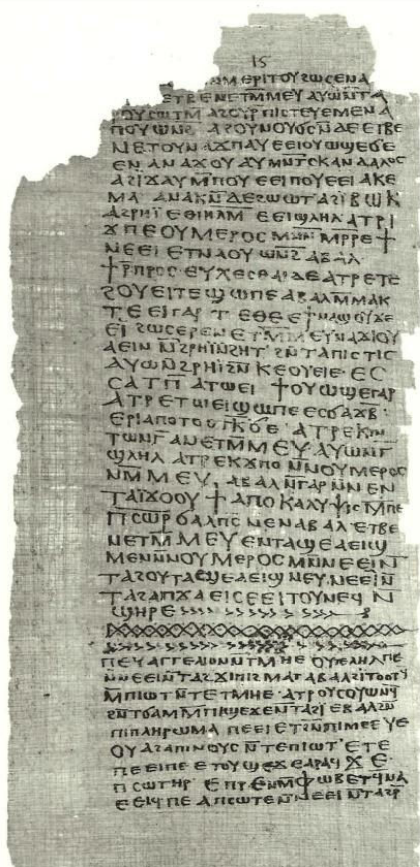 15
ⲛ̄ⲙⲉⲣⲓⲧⲟⲩϩⲱⲥⲉⲛⲁ
ⲉⲧⲃⲉⲛⲉⲧⲙ̄ⲙⲉⲩⲁⲩⲱⲛ̄ⲧⲁ
ⲟⲩⲥⲱⲧⲙ̄ⲁϩⲟⲩⲣ̄ⲡⲓⲥⲧⲉⲩⲉⲙⲉⲛⲁ
ⲡⲟⲩⲱⲛϩ̄ ⲁϩⲟⲩⲛⲟⲩϭⲥ̄ⲛ̄ⲇⲉⲉⲧⲃⲉ
ⲛⲉⲧⲟⲩⲛⲁϫⲡⲁⲩⲉⲉⲓⲟⲩⲱϣⲉϭⲉ
ⲉⲛ ⲁⲛⲁϫⲟⲩ ⲁⲩⲙⲛ̄ⲧⲥⲕⲁⲛⲇⲁⲗⲟⲥ
ⲁϩⲓϫⲁⲩⲙ̄ⲡⲟⲩⲉⲉⲓⲡⲟⲩⲉⲉⲓⲁⲕⲉ
ⲙⲁ ⲁⲛⲁⲕⲛ̄ⲇⲉϩⲱⲱⲧ ⲁϩⲓⲃⲱⲕ
ⲁϩⲣⲏⲓ̈ ⲉⲑⲓⲗⲏⲙ ⲉⲉⲓϣⲗⲏⲗ ⲁⲧⲣⲓ
ϫⲡⲉⲟⲩⲙⲉⲣⲟⲥ ⲙⲛ̄ ⲙ̄ⲣⲣⲉϯ
ⲛⲉⲉⲓ ⲉⲧⲛⲁⲟⲩⲱⲛϩ̄ ⲁⲃⲁⲗ
ϯⲣ̄ⲡⲣⲟⲥⲉⲩⲭⲉⲥⲑⲁⲓⲇⲉⲁⲧⲣⲉⲧⲉ
ϩⲟⲩⲉⲓⲧⲉϣⲱⲡⲉⲁⲃⲁⲗⲙ̄ⲙⲁⲕ
ⲧⲉⲉⲓⲅⲁⲣ ⲧⲉ ⲑⲉ ⲉϯⲛⲁϣⲟⲩϫⲉ
ⲉⲓ ϩⲱⲥⲉⲣⲉⲛⲉⲧⲙ̄ⲙⲉⲩⲛⲁϫⲓⲟⲩ
ⲁⲉⲓⲛ ⲛ̄ϩⲣⲏⲓ̈ⲛ̄ϩⲏⲧ ϩⲛ̄ⲧⲁⲡⲓⲥⲧⲓⲥ
ⲁⲩⲱⲛ̄ϩⲣⲏⲓ̈ϩⲛ̄ ⲕⲉⲟⲩⲉⲓⲉ ⲉⲥ
ⲥⲁⲧⲡ̄ ⲁⲧⲱⲉⲓ ϯⲟⲩⲱϣⲉⲅⲁⲣ
ⲁⲧⲣⲉⲧⲱⲉⲓϣⲱⲡⲉⲉⲥϭⲁϫⲃ̄
ⲉⲣⲓⲁⲡⲟⲧⲟⲟⲧⲕ̄ϭⲉ ⲁⲧⲣⲉⲕⲛ̄
ⲧⲱⲛⲅ̄ ⲁⲛⲉⲧⲙ̄ⲙⲉⲩ ⲁⲩⲱⲛⲅ̄
ϣⲗⲏⲗ ⲁⲧⲣⲉⲕϫⲡⲟⲛ̄ⲛⲟⲩⲙⲉⲣⲟⲥ
ⲛⲙ̄ⲙⲉⲩ, ⲁⲃⲁⲗⲛ̄ⲅⲁⲣⲛ̄ⲛⲉⲛ
ⲧⲁⲓ̈ϫⲟⲟⲩ ϯⲁⲡⲟⲕⲁⲗⲩⲯⲓⲥ ⲙ̄ⲡⲉ
ⲡⲥⲱⲣ̄ϭⲁⲗⲡⲥ̄ ⲛⲉⲛⲁⲃⲁⲗ ⲉⲧⲃⲉ
ⲛⲉⲧⲙ̄ⲙⲉⲩ ⲉⲛⲧⲁϣⲉⲁⲉⲓϣ
ⲙⲉⲛⲛ̄ⲛⲟⲩⲙⲉⲣⲟⲥ ⲙⲛ̄ⲛⲉⲉⲓⲛ
ⲧⲁϩⲟⲩⲧⲁϣⲉⲁⲉⲓϣⲛⲉⲩ,ⲛⲉⲉⲓⲛ
ⲧⲁϩⲁⲡϫⲁⲉⲓⲥⲉⲉⲓⲧⲟⲩⲛⲉϥⲛ̄
ϣⲏⲣⲉ
ⲡⲉⲩⲁⲅⲅⲉⲗⲓⲟⲛⲛ̄ⲧⲙⲏⲉ ⲟⲩⲧⲉⲗⲏⲗⲡⲉ
ⲛ̄ⲛⲉⲉⲓⲛ̄ⲧⲁϩϫⲓⲡⲓϩⲙⲁⲧ ⲁⲃⲁⲗϩⲓⲧⲟⲟⲧϥ̄
ⲙ̄ⲡⲓⲱⲧ ⲛ̄ⲧⲉⲧⲙⲏⲉ ⲁⲧⲣⲟⲩⲥⲟⲩⲱⲛϥ̄
ϩⲛ̄ⲧϭⲁⲙⲙ̄ⲡⲓϣⲉϫⲉⲛ̄ⲧⲁϩⲓ̈ ⲉⲃⲁⲗϩⲛ̄
ⲡⲓⲡⲗⲏⲣⲱⲙⲁ ⲡⲉⲉⲓⲉⲧϩⲛ̄ⲡⲓⲙⲉⲉⲩⲉ
ⲟⲩⲁϩⲁⲡⲓⲛⲟⲩⲥⲛ̄ⲧⲉⲡⲓⲱⲧ ⲉⲧⲉ
ⲡⲉⲉⲓⲡⲉ ⲉⲧⲟⲩϣⲉϫⲉⲁⲣⲁϥ ϫⲉ
ⲡⲥⲱⲧⲏⲣ ⲉⲡⲣⲉⲛⲙ̄ⲫⲱⲃⲉⲧϥⲛⲁ
ⲉⲉⲓϥⲡⲉ ⲁⲡⲥⲱⲧⲉⲛ̄ⲛⲉⲉⲓⲛ̄ⲧⲁϩⲣ̄